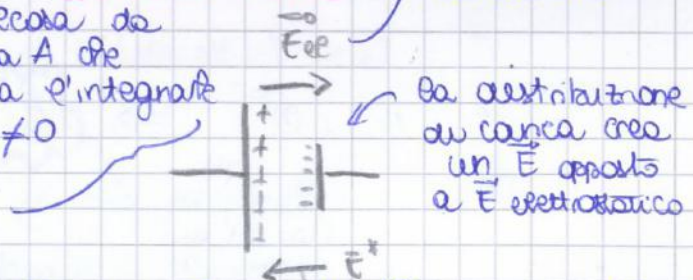 ecosa da
a A che
a l'integrale
≠0
E el
+
+
+
+
+
la distribuzione
di carica crea
un E opposto
a E elettrostatico
E*